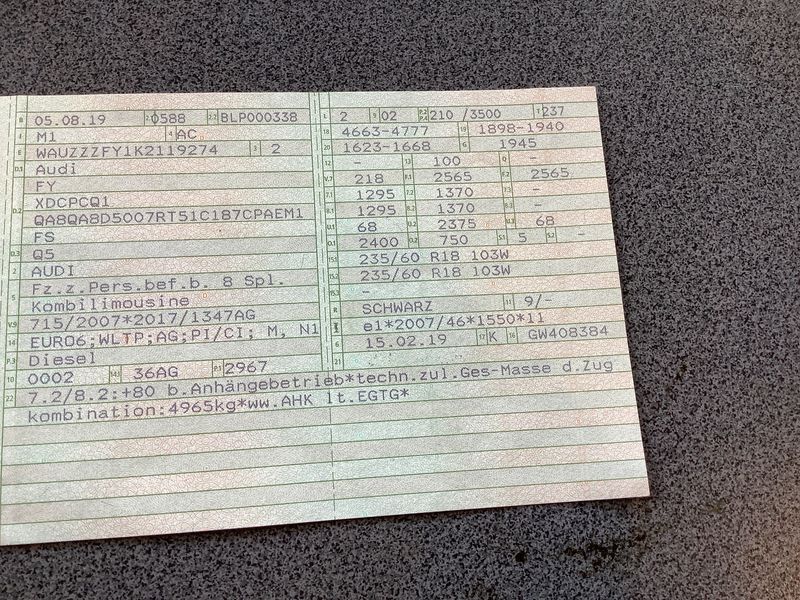 B 05.08.19 2.1 0588 2.2 BLP000338
J M1 4 AC
E WAUZZZFY1K2119274 3 2
D.1 Audi
FY
D.2 XDCPCQ1
QA8QA8D5007RT51C187CPAEM1
FS
D.3 Q5
2 AUDI
5 Fz.z.Pers.bef.b. 8 Spl.
Kombilimousine
V.9 715/2007*2017/1347AG
14 EURO6;WLTP;AG;PI/CI; M, N1
P.3 Diesel
10 0002 14.1 36AG P.1 2967
L 2 9 02 P.2 P.4 210 /3500 T 237
18 4663-4777 19 1898-1940
20 1623-1668 G 1945
12 - 13 100 Q -
V.7 218 F.1 2565 F.2 2565
7.1 1295 7.2 1370 7.3 -
8.1 1295 8.2 1370 8.3 -
U.1 68 U.2 2375 U.3 68
O.1 2400 O.2 750 S.1 5 S.2 -
15.1 235/60 R18 103W
15.2 235/60 R18 103W
15.3 -
R SCHWARZ 11 9/-
K e1*2007/46*1550*11
6 15.02.19 17 K 16 GW408384
21
22 7.2/8.2:+80 b.Anhängebetrieb*techn.zul.Ges-Masse d.Zug
kombination:4965kg*ww.AHK lt.EGTG*